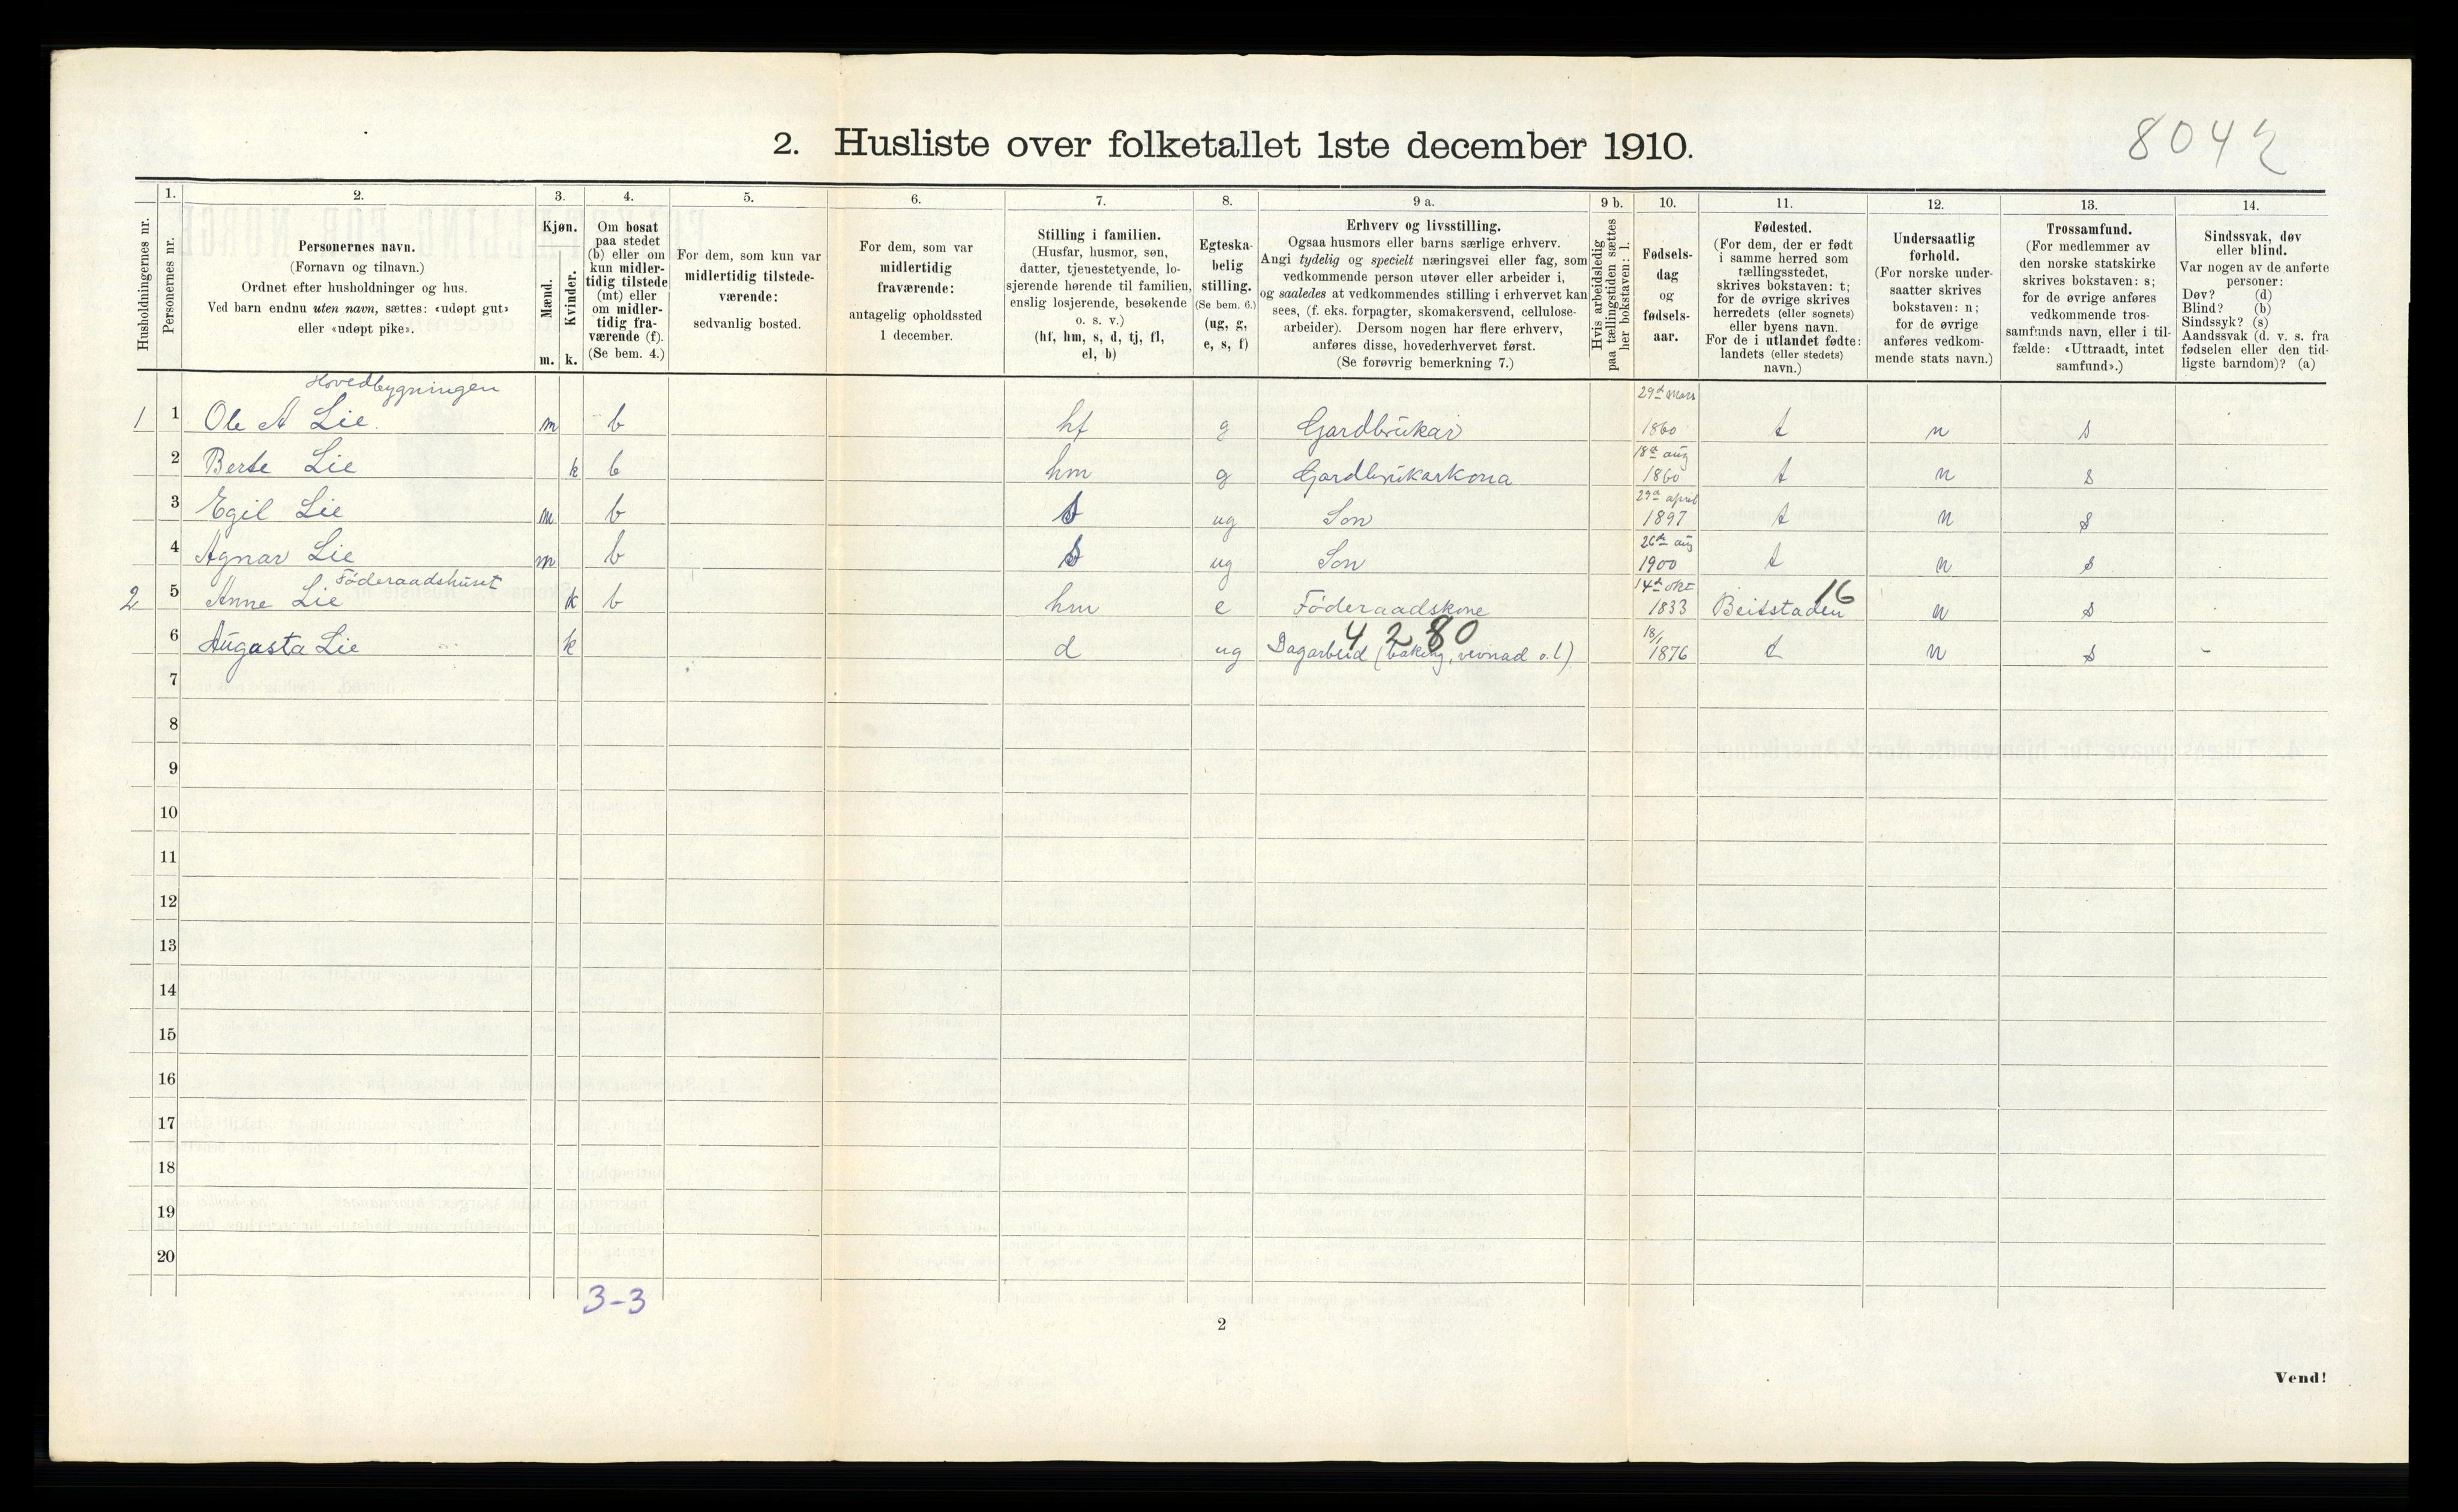 2. Husliste over folketallet 1ste december 1910.
8042
Husholdningernes nr.
1.
Personernes nr.
2.
Personernes navn.
(Fornavn og tilnavn.)
Ordnet efter husholdninger og hus.
Ved barn endnu uten navn, sættes: «udøpt gut»
eller «udøpt pike».
3.
Kjøn.
Mænd.
Kvinder.
m. k.
4.
Om bosat
paa stedet
(b) eller om
kun midler-
tidig tilstede
(mt) eller
om midler-
tidig fra-
værende (f).
(Se bem. 4.)
5.
For dem, som kun var
midlertidig tilstede-
værende:
sedvanlig bosted.
6.
For dem, som var
midlertidig
fraværende:
antagelig opholdssted
1 december.
7.
Stilling i familien.
(Husfar, husmor, søn,
datter, tjenestetyende, lo-
sjerende hørende til familien,
enslig losjerende, besøkende
o. s. v.)
(hf, hm, s, d, tj, fl,
el, b)
8.
Egteska-
belig
stilling.
(Se bem. 6.)
(ug, g,
e, s, f)
9 a.
Erhverv og livsstilling.
Ogsaa husmors eller barns særlige erhverv.
Angi tydelig og specielt næringsvei eller fag, som
vedkommende person utøver eller arbeider i,
og saaledes at vedkommendes stilling i erhvervet kan
sees, (f. eks. forpagter, skomakersvend, cellulose-
arbeider). Dersom nogen har flere erhverv,
anføres disse, hovederhvervet først.
(Se forøvrig bemerkning 7.)
9 b.
Hvis arbeidsledig
paa tællingstiden sættes
her bokstaven: l.
10.
Fødsels-
dag
og
fødsels-
aar.
11.
Fødested.
(For dem, der er født
i samme herred som
tællingsstedet,
skrives bokstaven: t;
for de øvrige skrives
herredets (eller sognets)
eller byens navn.
For de i utlandet fødte:
landets (eller stedets)
navn.)
12.
Undersaatlig
forhold.
(For norske under-
saatter skrives
bokstaven: n;
for de øvrige
anføres vedkom-
mende stats navn.)
13.
Trossamfund.
(For medlemmer av
den norske statskirke
skrives bokstaven: s;
for de øvrige anføres
vedkommende tros-
samfunds navn, eller i til-
fælde: «Uttraadt, intet
samfund».)
14.
Sindssvak, døv
eller blind.
Var nogen av de anførte
personer:
Døv? (d)
Blind? (b)
Sindssyk? (s)
Aandssvak (d. v. s. fra
fødselen eller den tid-
ligste barndom)? (a)
Hovedbygningen
1 1 Ole A Lie m b hf g Gardbrukar 29de mars 1860 t n s
2 Berte Lie k b hm g Gardbrukarkona 18de aug 1860 t n s
3 Egil Lie m b s ug Son 29de april 1897 t n s
4 Agnar Lie m b s ug Son 26de aug 1900 t n s
Föderaadshuset
2 5 Anne Lie k b hm e Föderaadskone 14de okt 1833 Beitstaden 16 n s
4 2 80
6 Augasta Lie k d ug Dagarbeid (baking, vevnad o.l.) 18/1 1876 t n s -
7
8
9
10
11
12
13
14
15
16
17
18
19
20
3-3
2
Vend!